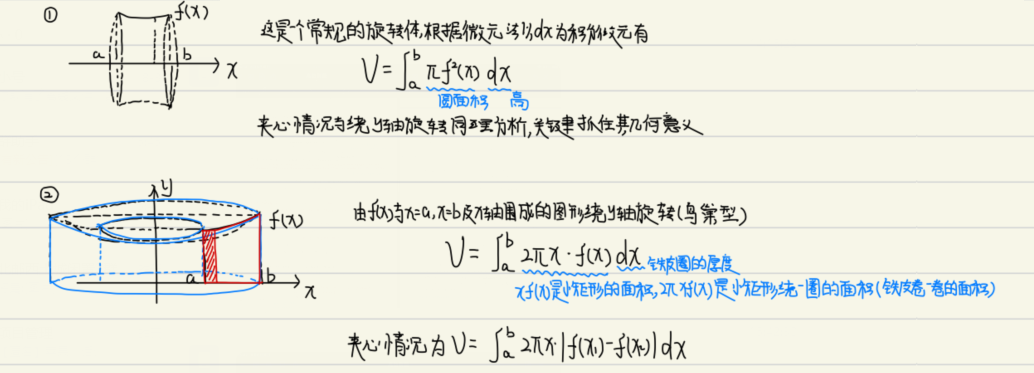 ① f(x) 这是个常规的旋转体,根据微元法以dx为积分微元有
a b x
V=∫_a^b πf²(x) dx
圆面积 高
夹心情况与绕y轴旋转同理分析,关键抓住其几何意义
② y f(x) 由f(x)与x=a,x=b及x轴围成的图形绕y轴旋转(鸟巢型)
V=∫_a^b 2πx·f(x) dx 铁皮圈的厚度
a b x
xf(x)是小矩形的面积,2πxf(x)是小矩形绕一圈的面积(铁皮卷一卷的面积)
夹心情况为V=∫_a^b 2πx·|f(x₁)-f(x₂)|dx